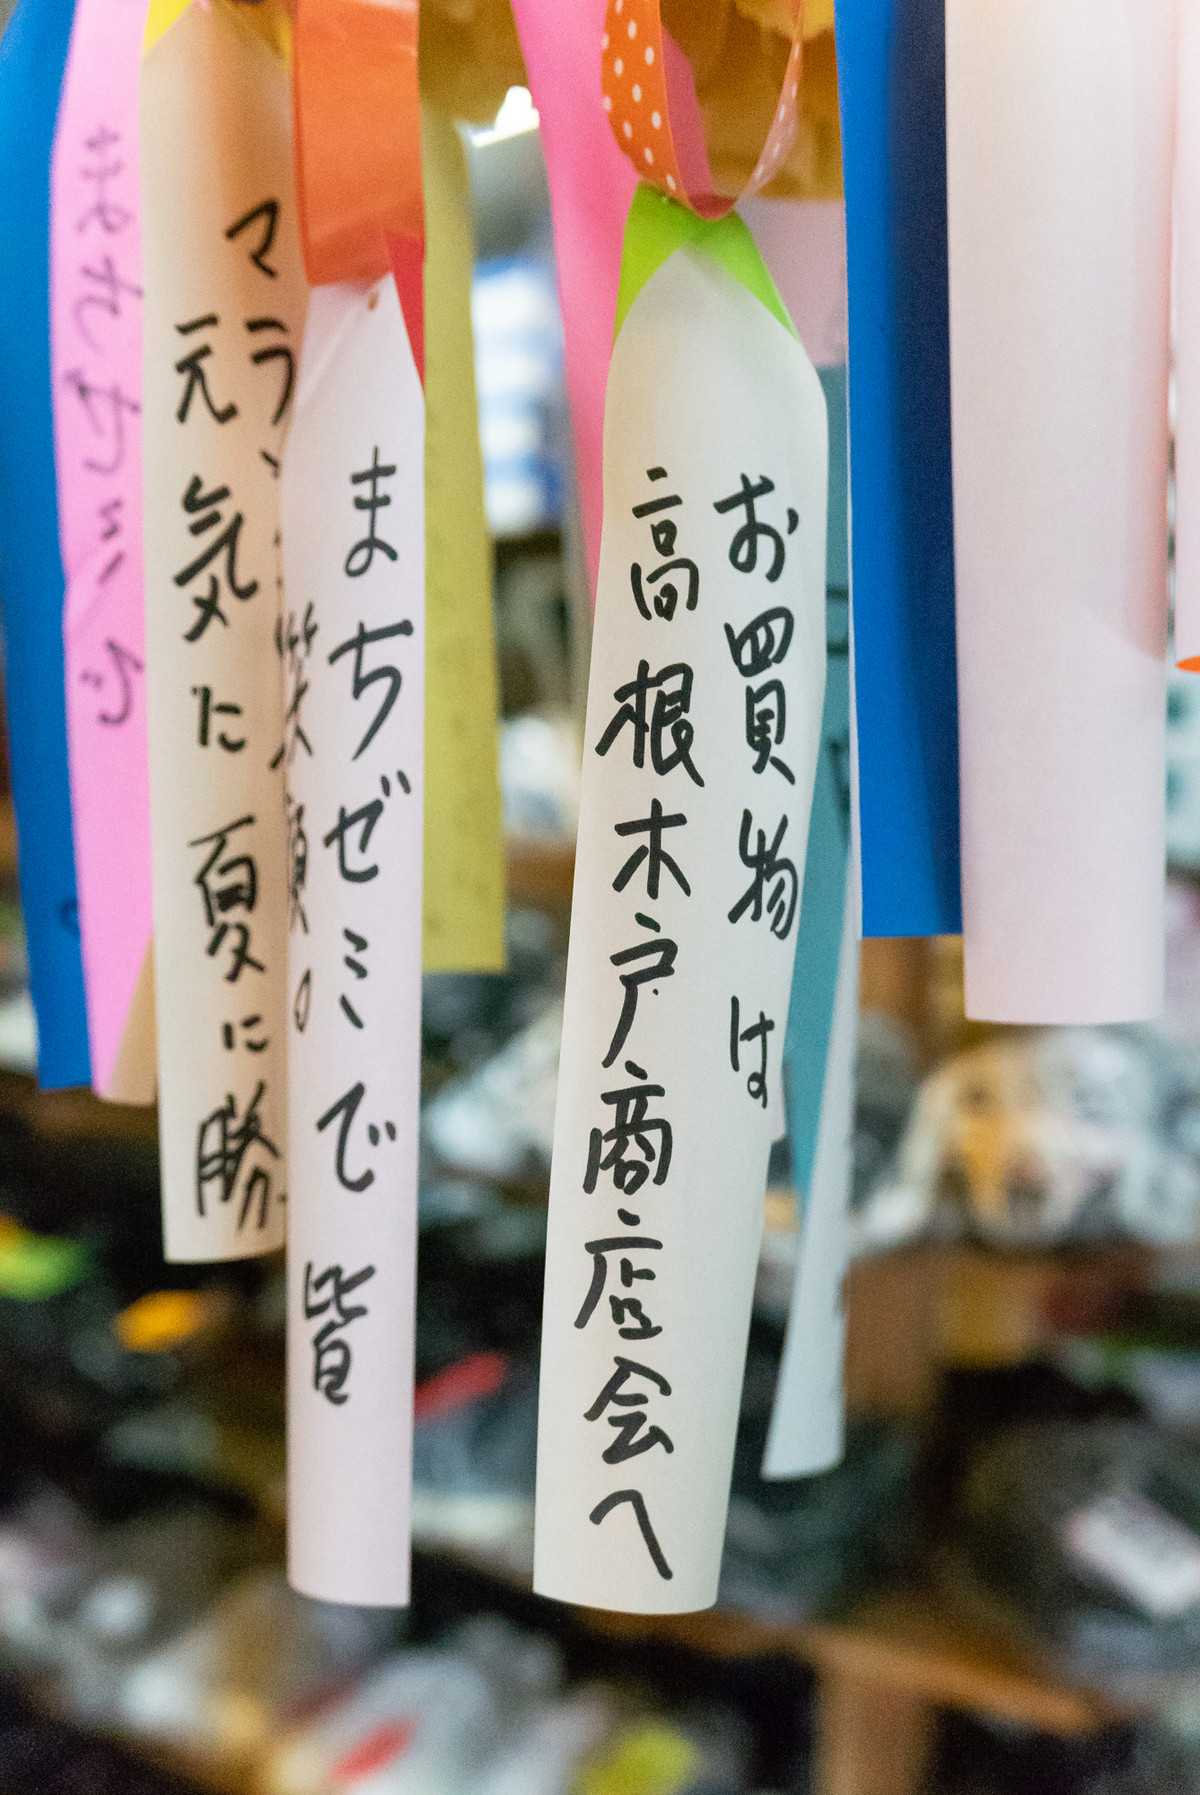 お買物は
高根木戸商店会へ
まちゼミで皆
笑顔。
マラン
元気た夏に勝
まちゼミ